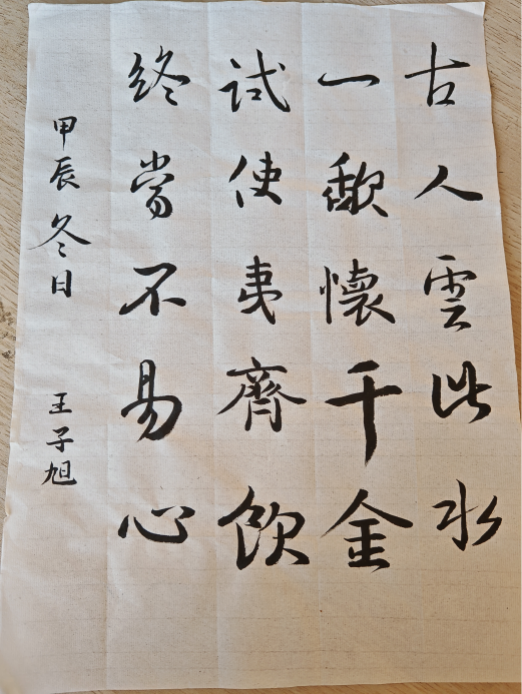 古人雲此水
一歃懷千金
試使夷齊飲
終當不易心
甲辰冬日 王子旭